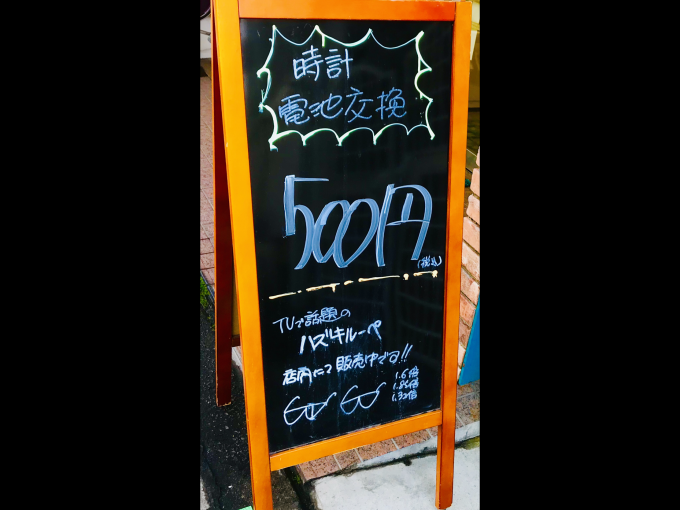 時計
電池交換
500円
(税込)
TVで話題の
ハズキルーペ
店内にて販売中です!!
1.6倍
1.85倍
1.32倍